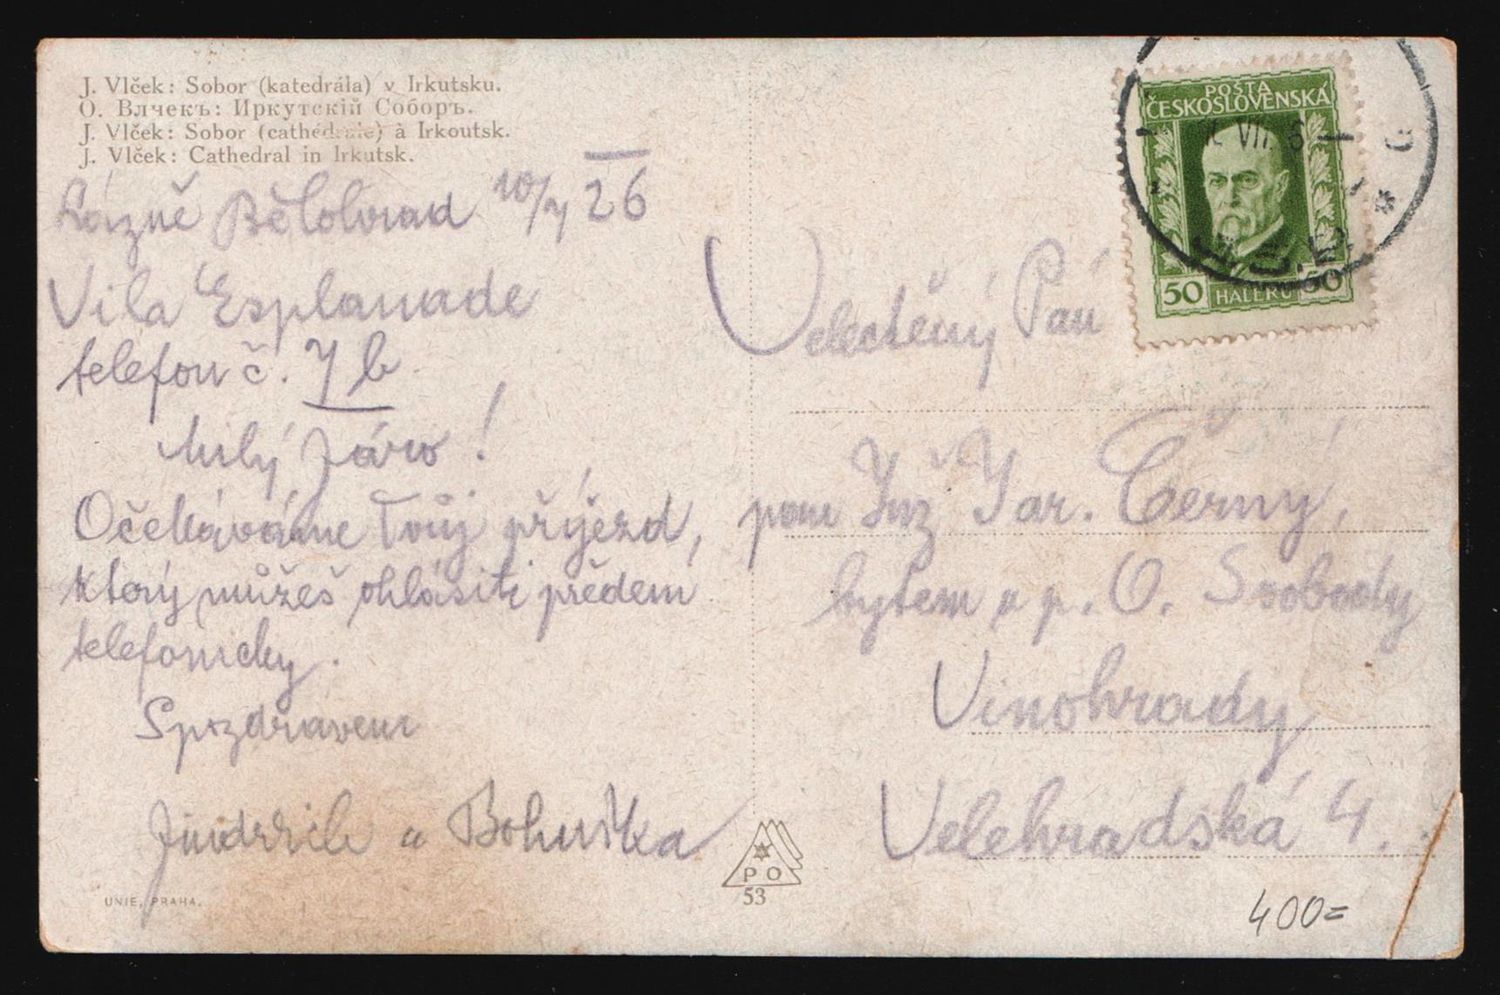 J. Vlček: Sobor (katedrála) v Irkutsku.
О. Влчекъ: Иркутскій Соборъ.
J. Vlček: Sobor (cathédrale) à Irkoutsk.
J. Vlček: Cathedral in Irkutsk.
Lázně Bělohrad 10/7 26
Vila Esplanade
telefon č. 7 b
Milý Járo!
Očekáváme Tvůj příjezd,
který můžeš ohlásiti předem
telefonicky.
S pozdravem
Jindřich a Bohuška
UNIE, PRAHA.
P O
53
POŠTA
ČESKOSLOVENSKÁ
VII.
50 HALÉŘŮ 50
Velectěný Pán
pan Inž Jar. Černý,
bytem u p. O. Svobody
Vinohrady
Velehradská 4.
400=